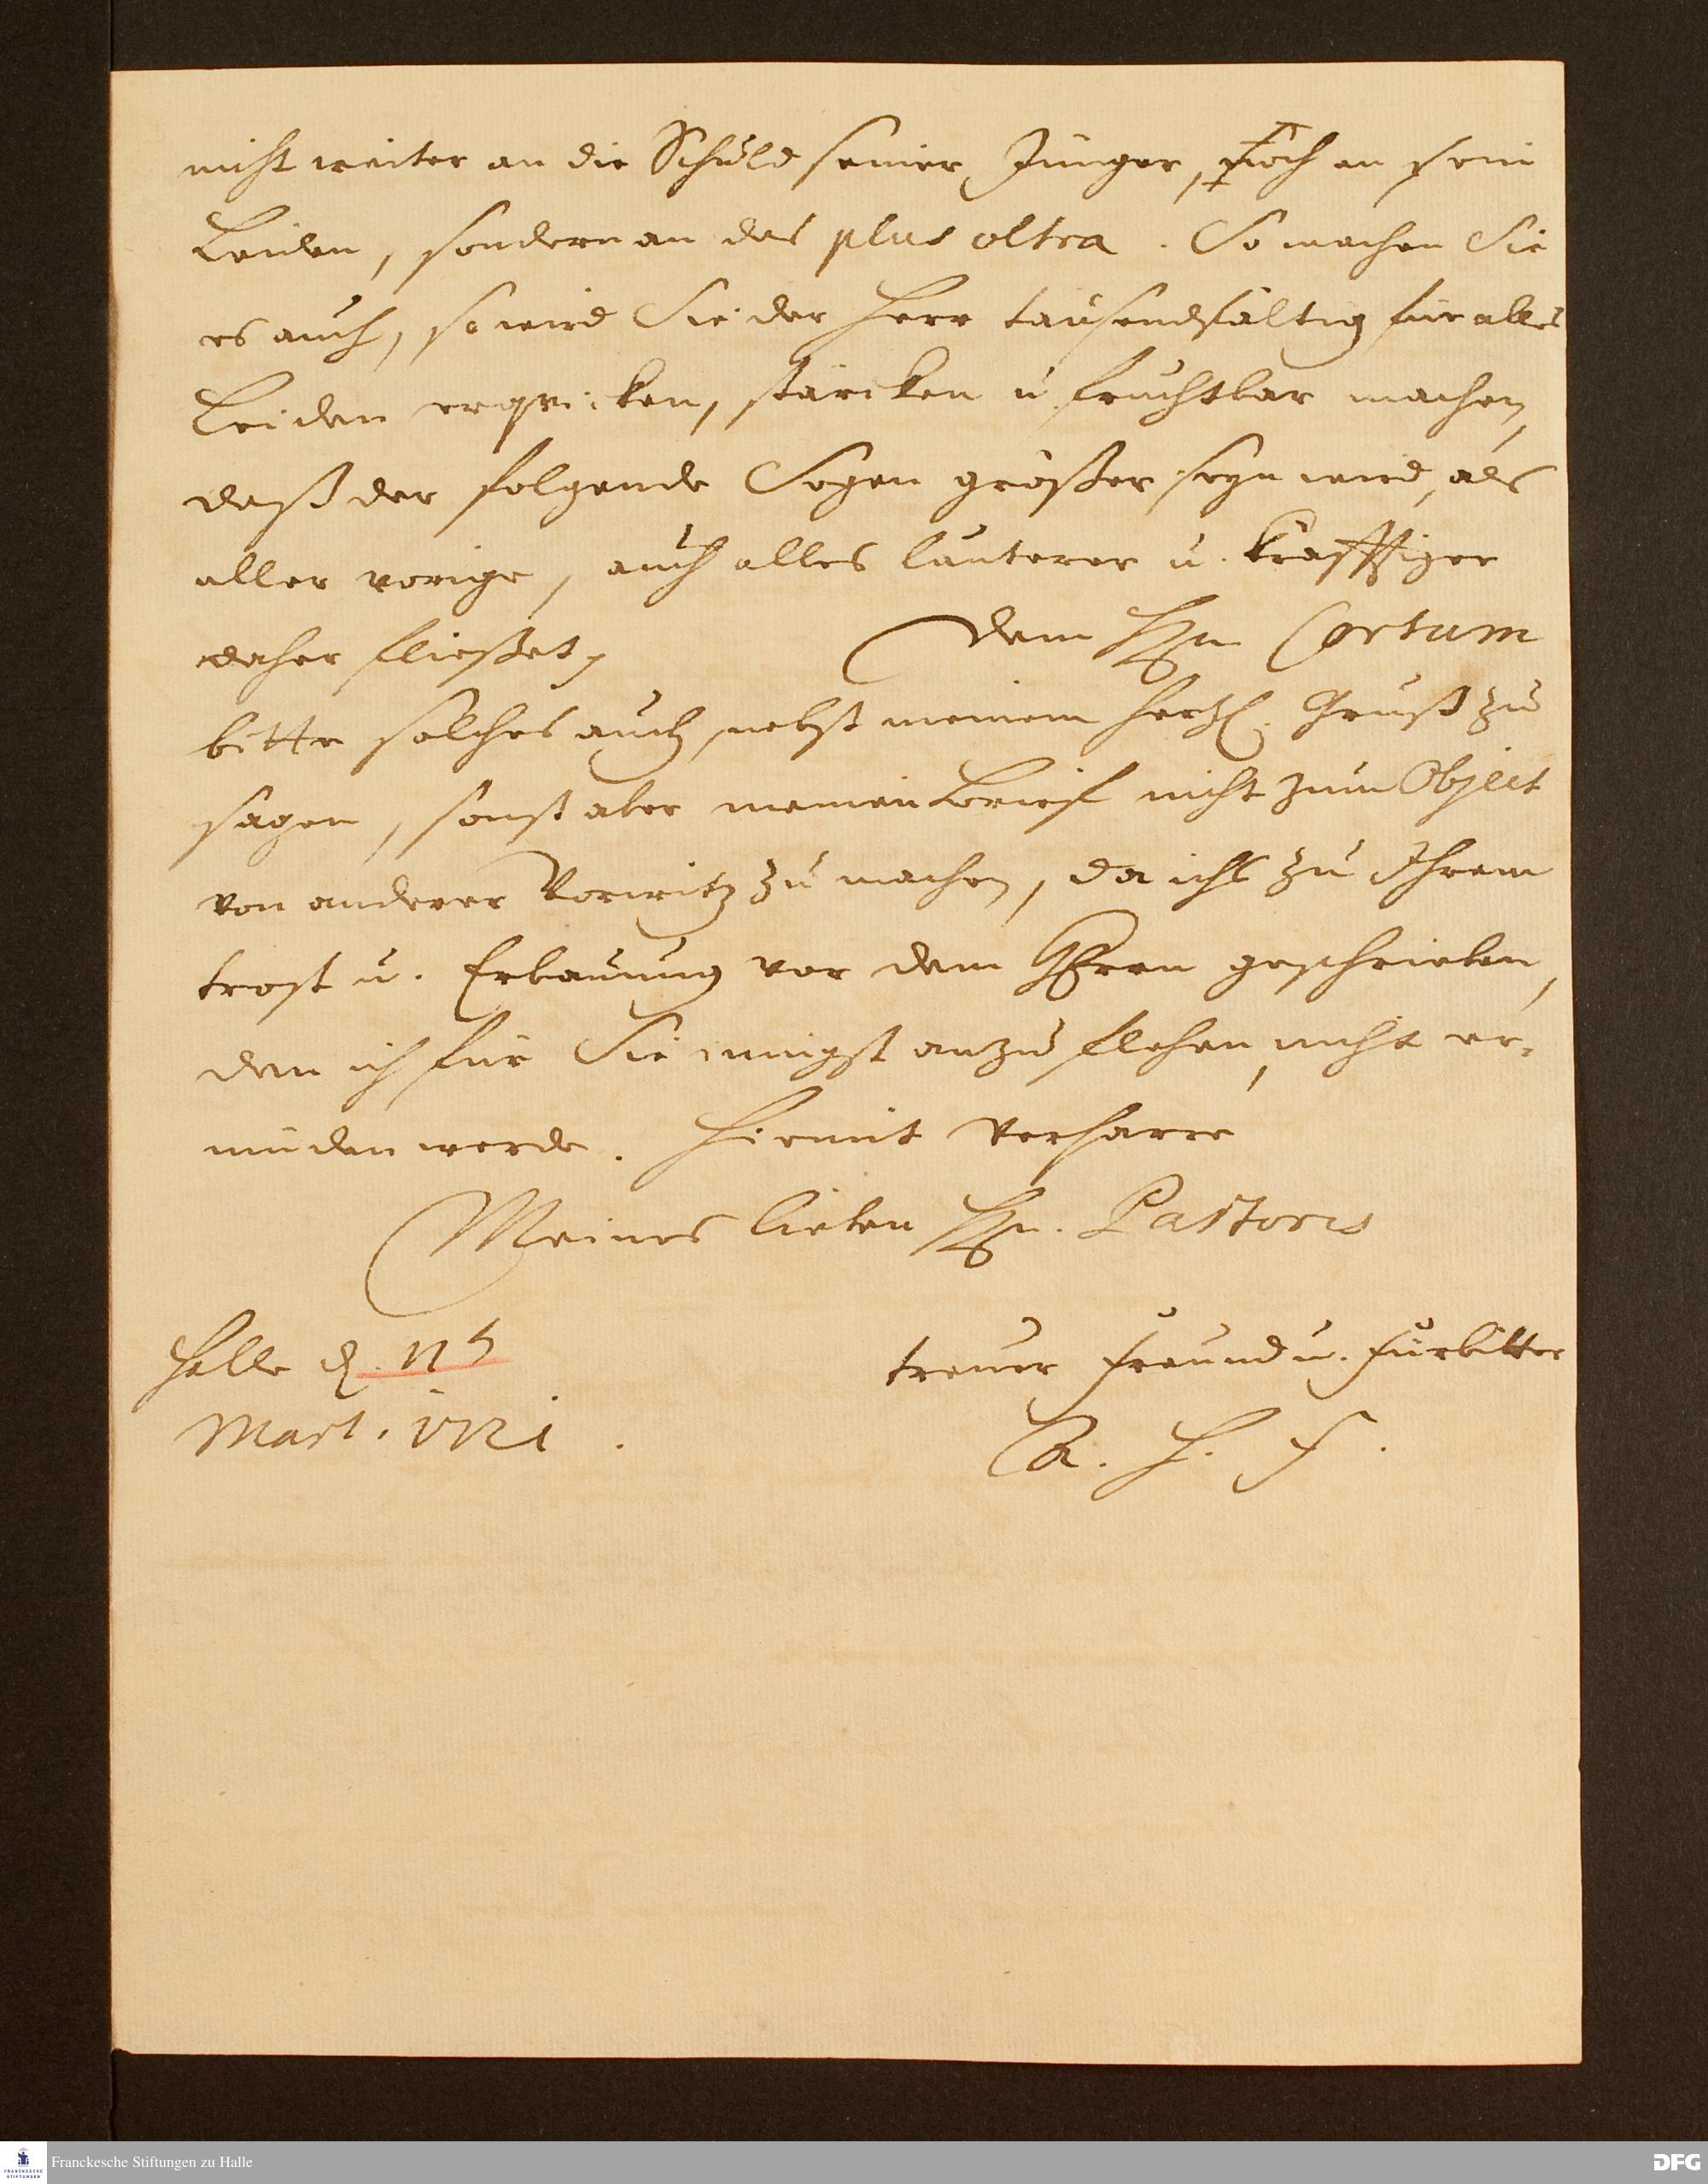 nicht weiter an die Schuld seiner Jünger, noch an sein
Leiden, sondern an das plus oltra. So machen Sie
es auch, so wird Sie der Herr tausendfältig für alles
Leiden erqvicken, stärcken u. fruchtbar machen,
daß der folgende Segen größer seyn wird, als
aller vorige, auch alles lauterer u. kräfftiger
daher fließet.
Dem Hn Cortum
bitte solches auch, nebst meinem hertzl. Gruß zu
sagen, sonst aber meinen Brief nicht zum Object
von anderer Vorwitz zu machen, da ichs zu Ihrem
trost u. Erbauung vor dem HErrn geschrieben,
den ich für Sie innigst anzuflehen, nicht er-
müden werde. Hiemit verharre
Meines lieben Hn. Pastoris
treuer Freund u. Fürbitter
A. H. F.
Halle d.
Mart. 1721.
Franckesche Stiftungen zu Halle
FRANCKESCHE STIFTUNGEN
DFG